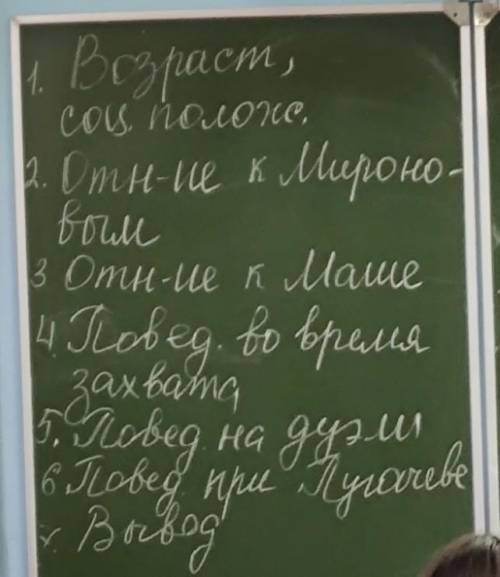 1. Возраст,
соц. полож.
2. Отн-ие к Мироно-
вым
3 Отн-ие к Маше
4. Повед. во время
захвата
5. Повед. на дуэли
6 Повед. при Пугачеве
7. Вывод